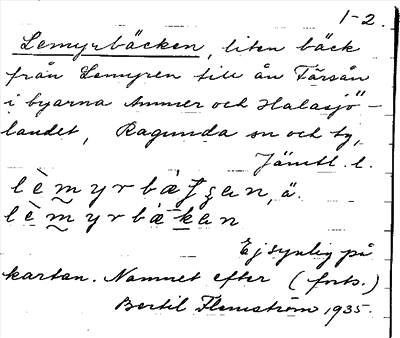 1-2.
Lemyrbäcken, liten bäck
från Lemyren till ån Färsån
i byarna Ammer och Halasjö-
landet, Ragunda sn och tg,
Jämtl. l.
lèmyrbäʃʒan, ä.
lèmyrbäkan
Ej synlig på
kartan. Namnet efter (forts.)
Bertil Flemström 1935.